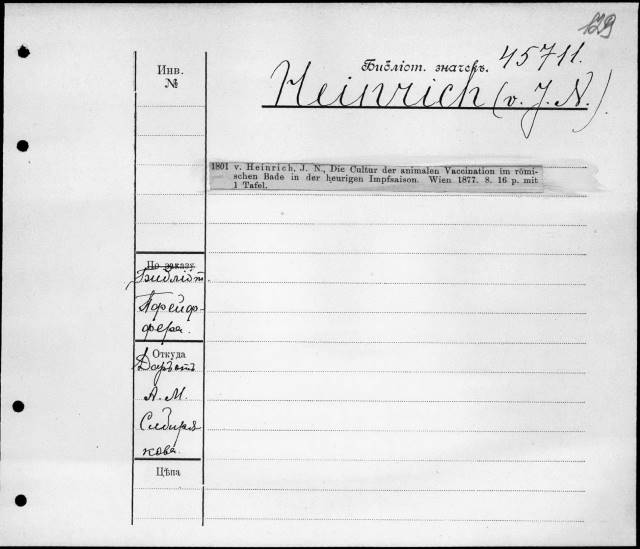 629
Инв.
№
Библіот. значокъ. 45711.
Heinrich (v. J. N.)
1801 v. Heinrich, J. N., Die Cultur der animalen Vaccination im römi-
schen Bade in der heurigen Impfsaison. Wien 1877. 8. 16 p. mit
1 Tafel.
По заказу
Библіот.
Пфейф-
фера.
Откуда
Даръ отъ
А. М.
Сибиря
кова.
Цѣна